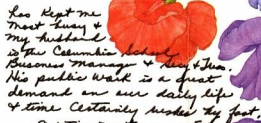 has kept me
most busy &
my husband
is the Columbia School
Business Manager & Secy & Treas.
His public work is a great
demand on our daily life
& time certainly wishes by fast.